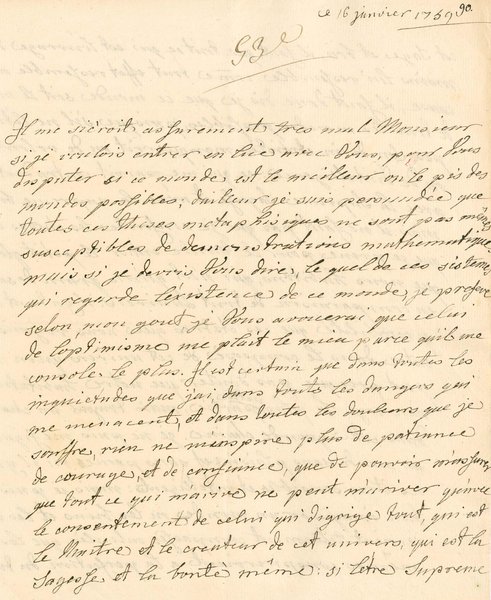 ce 16 janvier 1759 90.
53e
Il me sieroit assurement tres mal Monsieur
si je voulois entrer en lice avec Vous, pour Vous
disputer si ce monde est le meilleur ou le pis des
mondes possibles; dailleur je suis persuadée que
toutes ces thèses metaphisiques ne sont pas mêmes
susceptibles de demonstrations mathematiques
mais si je devois Vous dire, le quel de ces sistemes
qui regarde l'éxistence de ce monde, je prefere
selon mon gout, je Vous avouerai que celui
de l'optimisme me plait le mieu parce qu'il me
console le plus. Il est certain que dans toutes les
inquietudes que j'ai, dans touts les dangers qui
me menacent, et dans toutes les douleurs que je
souffre, rien ne m'inspire plus de patience
de courage, et de confiance, que de pouvoir m'assurer,
que tout ce qui m'arive ne peut m'ariver qu'avec
le consentement de celui qui digrige tout, qui est
le Maitre et le createur de cet univers, qui est la
Sagesse et la bonté même: si letre Supreme